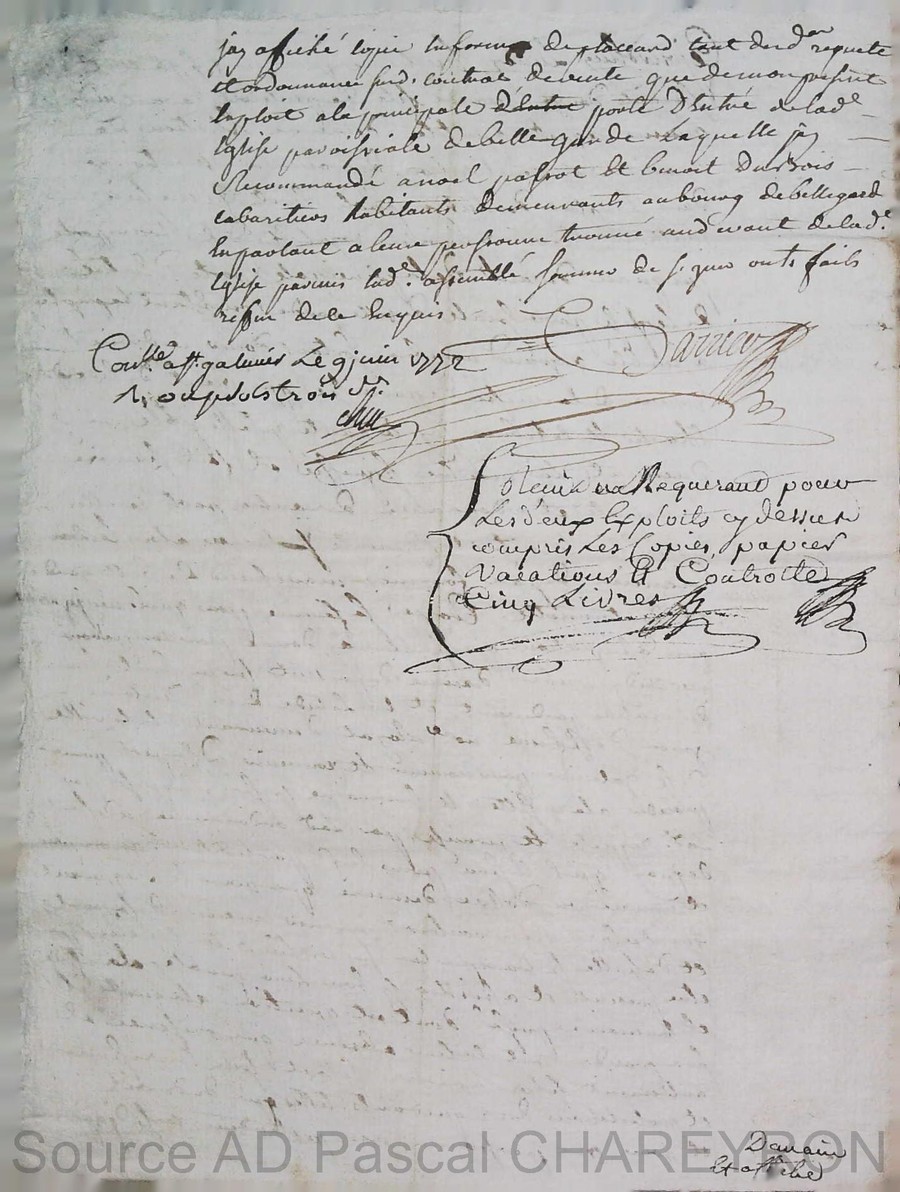 jay affiché copie en forme de placeard tant desd. requete
et ordonnance sud. contrat de vente que demon present
Exploit ala principale d'Entre porte D'Entré de lad.e
Eglise paroissiale de bellegarde Laquelle jay
Recommandé a noel passot Et benoit DuBois
cabaritiers habitants demeurants au bourg debellegard
En parlant a leurs personne trouvé audevant de lad.e
Eglise parmis lad.e assemblé sommer de signer onts faits
reffus de ce Enquis
Darricy
Con.lé a st. galmier Le 9 juin 1772
R. onze sols trois d.rs
Soteür au Requerant pour
Les deux Exploits cy dessus
compris Les Copies, papier
vacations Et Controlle
Cinq Livres
Demain
Et affiche
Source AD Pascal CHAREYRON